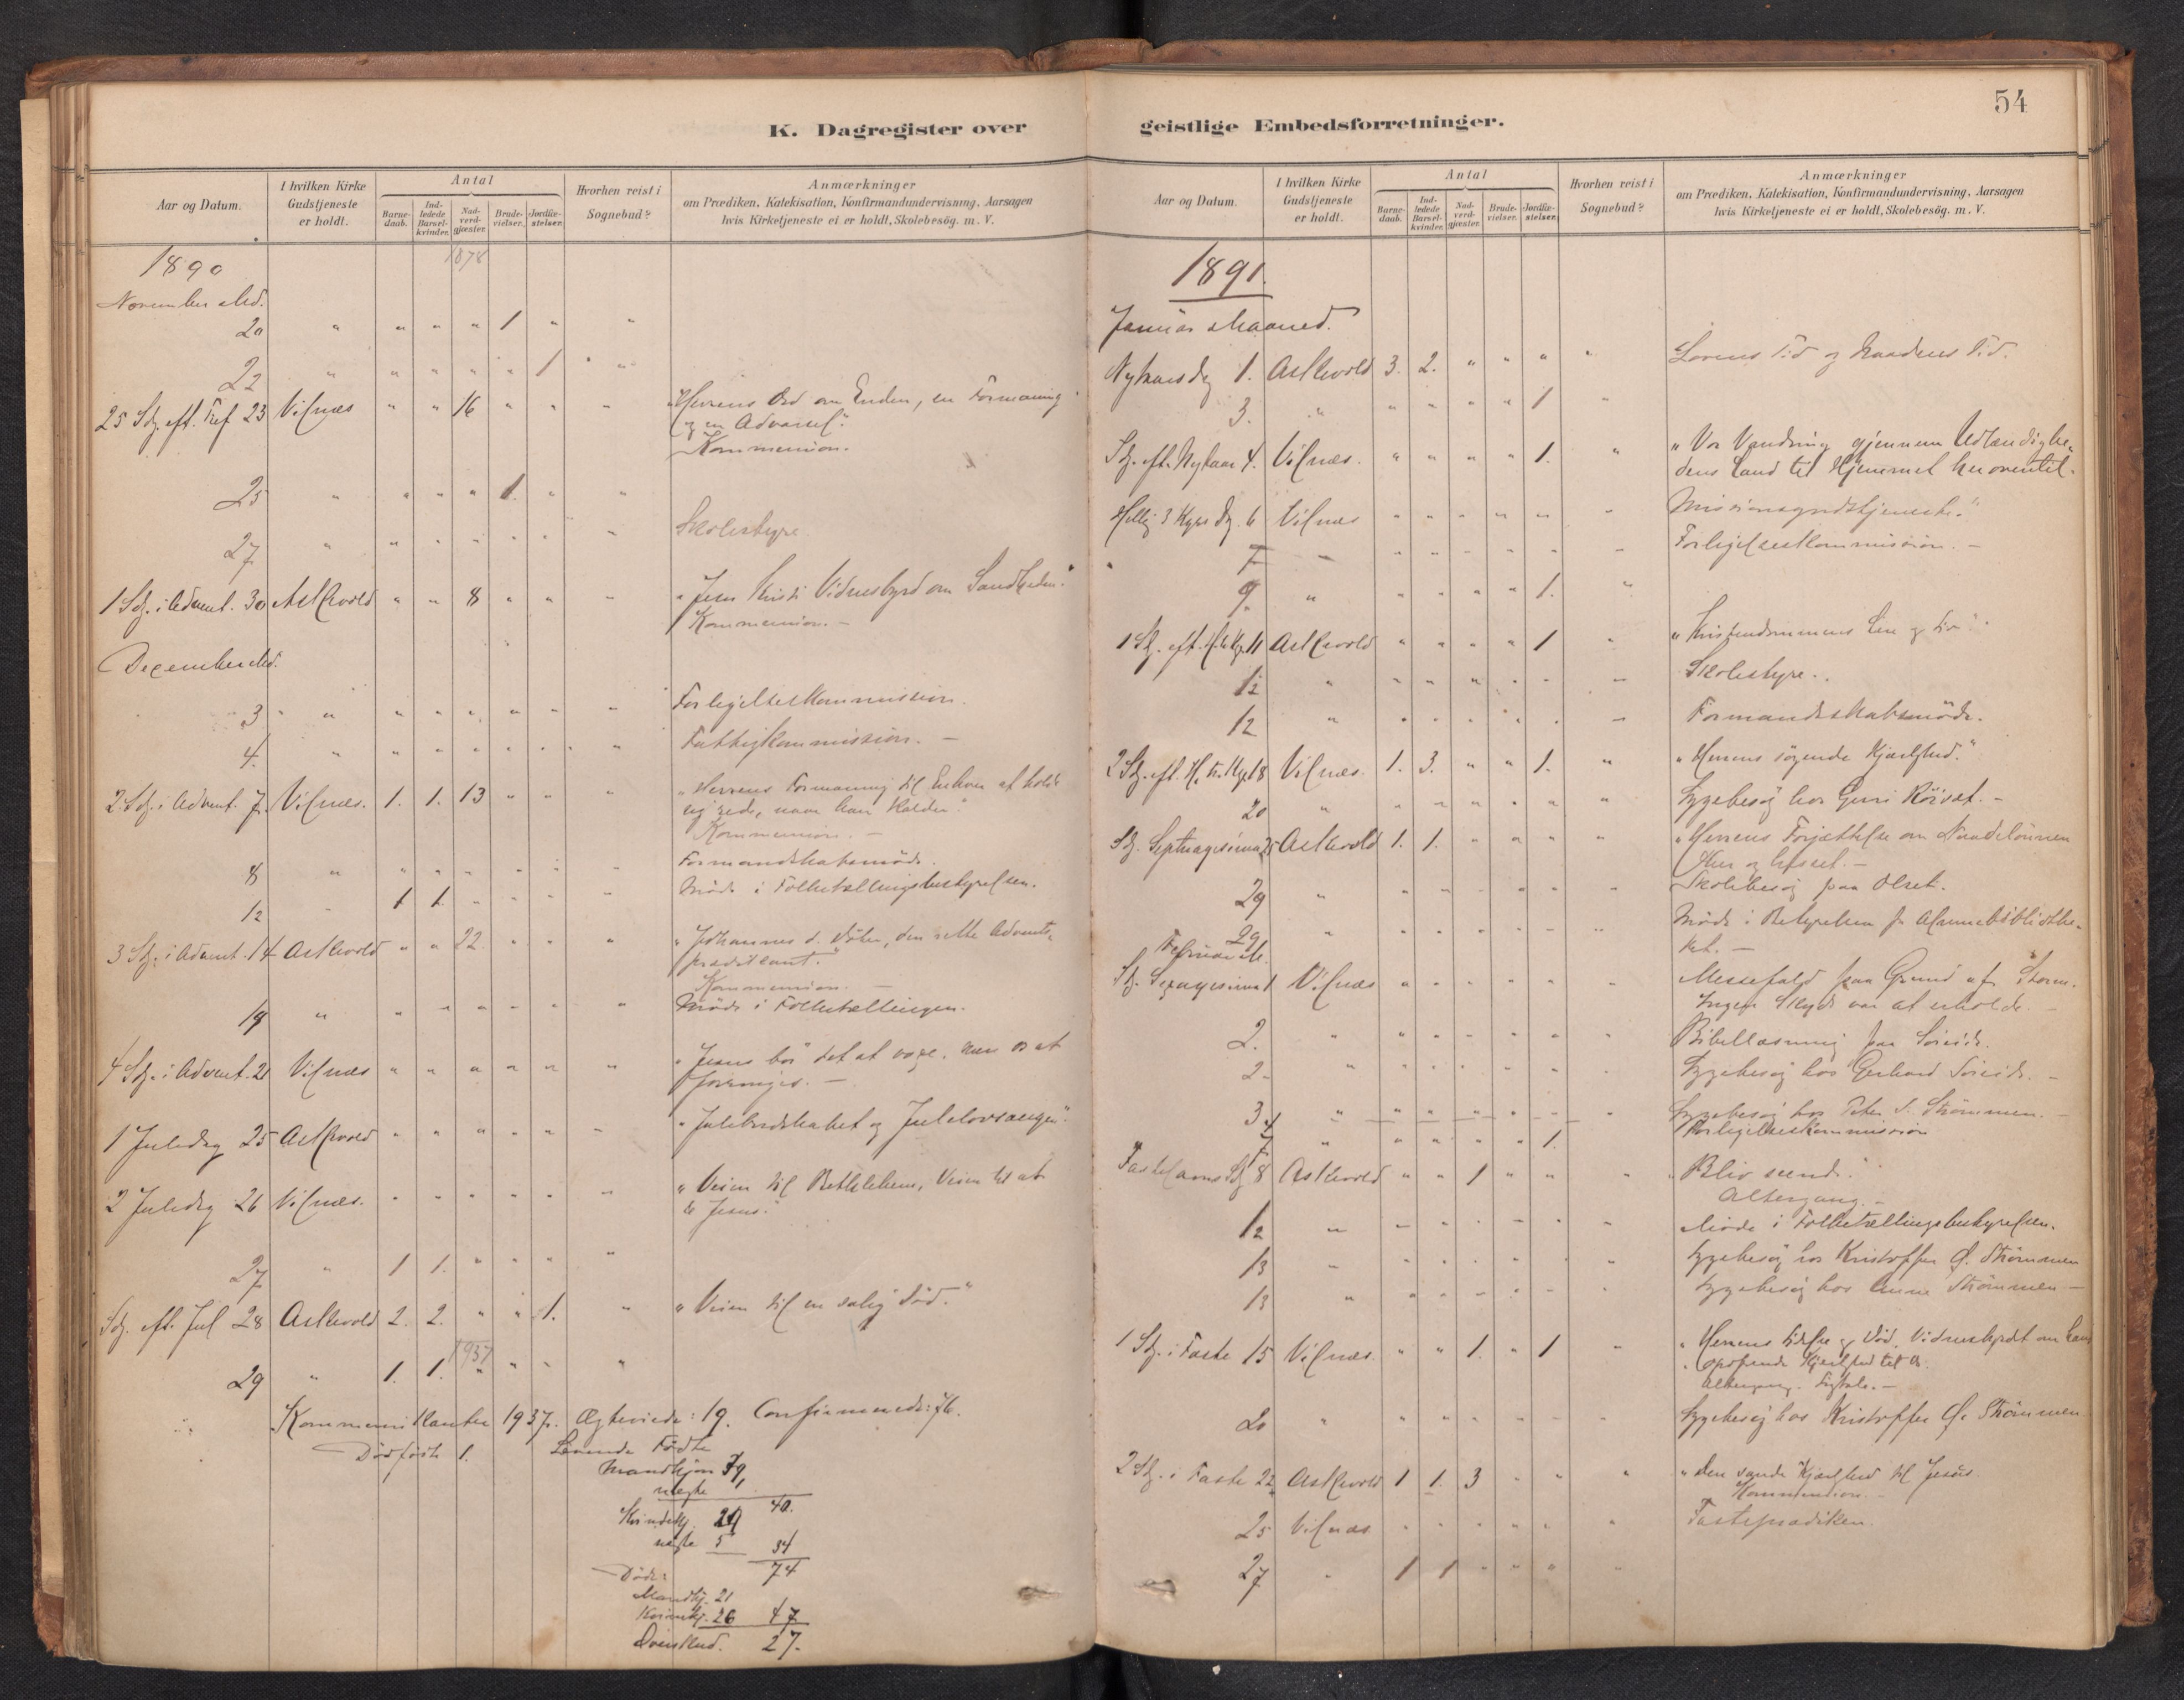 54
K. Dagregister over
geistlige Embedsforretninger.
Aar og Datum.
I hvilken Kirke Gudstjeneste er holdt.
Antal
Barne-daab.
Ind-ledede Barsel-kvinder.
Nad-verd-gjæster.
Brude-vielser.
Jordfæ-stelser.
Hvorhen reist i Sognebud?
Anmærkninger
om Prædiken, Katekisation, Konfirmandundervisning, Aarsagen
hvis Kirketjeneste ei er holdt, Skolebesög. m. V.
1890 1878
November Md.
20 " " " " 1 " "
22 " " " " " 1 "
25 Sdg. eft. Tref. 23 Vilnæs " " 16 " " " "Herrens Ord om Enden, en Formaning
og en Advarsel".
Kommunion.
25 " " " " 1. " "
27 " " " " " " " Skolestyre.
1 Sdg. i Advent. 30 Askvold " " 8 " " " "Jesu Kristi Vidnesbyrd om Sandheden."
Kommunion. –
December Md.
3 " " " " " " " Forligelseskommission.
4. " " " " " " " Fattigkommission. –
2 Sdg. i Advent. 7. Vilnæs. 1. 1. 13 " " " "Herrens Formaning til Enhver at holde
sig rede, naar han kalder."
Kommunion. –
8 " " " " " " " Formandskabsmöde.
12 " 1 1. " " " " Möde i Folketællingsbestyrelsen.
3 Sdg. i Advent. 14 Askvold " " 22 " " " "Johannes d. Döber, den rette Advents-
prædikant."
Kommunion. –
19 " " " " " " " Möde i Folketællingen.
4 Sdg. i Advent. 21 Vilnæs " " " " " "
1 Juledag 25 Askvold " " " " " " "Julebudskabet og Julelovsangen".
2 Juledag 26 Vilnæs. " " " " " " "Veien til Bethlehem, Veien til at
Jesus."
27 " 1 1. " " " "
Sdg. eft. Jul 28 Askvold 2. 2. " " 1. " "Veien til en salig Död."
1937
29 " 1. 1. " " " "
Kommunikanter 1937. Ægteviede: 19. Confirmerede: 76.
Dödfödte 1. Levende Födte
Mandkjön 39,
uegte 40.
Kvindekj. 29
uegte 5 34
74
Döde:
Mandkj. 21
Kvindekj. 26 47
Overskud. 27.
Aar og Datum.
I hvilken Kirke Gudstjeneste er holdt.
Antal
Barne-daab.
Ind-ledede Barsel-kvinder.
Nad-verd-gjæster.
Brude-vielser.
Jordfæ-stelser.
Hvorhen reist i Sognebud?
Anmærkninger
om Prædiken, Katekisation, Konfirmandundervisning, Aarsagen
hvis Kirketjeneste ei er holdt, Skolebesög. m. V.
1891.
Januar Maaned.
Nytaarsdag 1. Askvold 3. 2. " " " " Lovens Tid og Naadens Tid.
3. " " " " " 1 "
Sdg. eft. Nytaar 4. Vilnæs. " " " " 1. " "Vor Vandring gjennem Udlændighe-
dens Land til Hjemmet heroventil.
Hellig 3 Kgrs Dg. 6 Vilnæs " " " " " " Missionsgudstjeneste."
7 " " " " " " " Forligelseskommission. –
9. " " " " " 1. "
1 Sdg. eft. H. tr. Kg. 11 Askvold " " " " 1 " "Kristendommens
12 " " " " " " " Skolestyre.
12 " " " " " " " Formandskabsmöde.
2 Sdg. eft. H. tr. Kg. 18 Vilnæs. 1. 3. " " 1. " "Herrens sögende Kjærlighed."
20 " " " " " " " Sygebesög hos Guri –
Sdg. Septuagesima 25 Askvold 1. 1. " " " " "Herrens Forjættelse om Naadelönnen
her og hisset. –
29 " " " " " " " Skolebesög paa Olset.
29 " " " " " " " Möde i Bestyrelsen for Almuebibliothe-
ket. –
Februar M.
Sdg. Sexagesima 1 Vilnæs " " " " " " Messefald paa Grund af Storm.
Ingen Skyds var at erholde. –
2. " " " " " " " Bibellæsning paa
2. " " " " " " " Sygebesög hos Gerhard
3 " " " " " " " Sygebesög hos Peter S. Strömmen. –
4 Forligelseskommission
7 " " " " " 1. "
Fastelavns Sdg 8 Askvold " " 1 " " " "Bliv seende."
Altergang. –
12 " " " " " " " Möde i Folketællingsbestyrelsen.
13 " " " " " " " Sygebesög hos Kristoffer O. Strömmen
13 " " " " " " " Sygebesög hos Anne Strömmen –
1 Sdg. i Faste 15 Vilnæs. " " 1. " 1 " "Herrens Lidelse og Död, Vidnesbyrdet om hans
opofrende Kjærlighed til os.
Altergang. –
20 " " " " " " " Sygebesög hos Kristoffer O. Strömmen
2 Sdg. i Faste 22 Askvold 1 1. 3 " " " "Den sande Kjærlighed til Jesus
Kommunion. –
25 Vilnæs " " " " " " Fasteprædiken.
27 " 1 1 " " " "